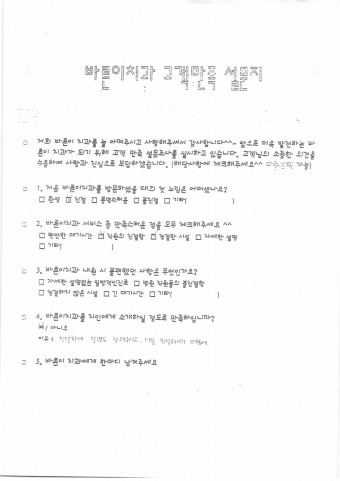 바른이치과 고객만족 설문지
저희 바른이 치과를 늘 아껴주시고 사랑해주셔서 감사합니다^^~ 앞으로 더욱 발전하는 바
른이 치과가 되기 위해 고객 만족 설문조사를 실시하고 있습니다. 고객님의 소중한 의견을
수용하여 사랑과 진심으로 보답하겠습니다. (해당사항에 체크해주세요^^ 가능)
1. 처음 바른이치과를 방문하셨을 때의 첫 느낌은 어떠셨나요?
□ 환영 ☑ 친절 □ 불친절 □ 기타( )
2. 바른이치과 서비스 중 만족스러운 점을 모두 체크해주세요 ^^
□ 편안한 대기시간 ☑ 직원의 친절함 ☑ 청결한 시설 □ 자세한 설명
□ 기타( )
3. 바른이치과 내원 시 불편했던 사항은 무엇인가요?
□ 자세한 설명없는 일방적인진료 □ 병원 직원들의 불친절함
□ 청결하지 않은 시설 □ 긴 대기시간 □ 기타( )
4. 바른이치과를 지인에게 소개하실 정도로 만족하십니까?
예 / 아니오
이유 : 친절하게 해주시고, 다들 친절하세요
5. 바른이 치과에게 한마디 남겨주세요